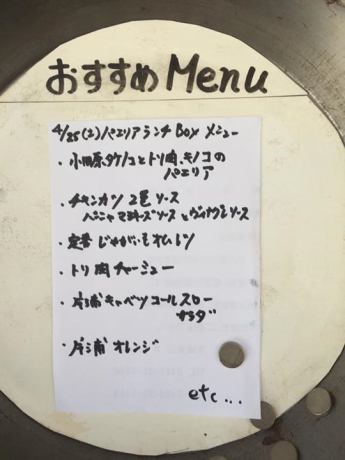 おすすめ Menu
4/25(土)パエリアランチBox メニュー
・小田原タケノコとトリ肉、キノコの
パエリア
・チキンカツ 2色ソース
マヨネーズソースと
・定番 じゃがいもオムレツ
・トリ肉チャーシュー
・片浦キャベツ コールスロー
サラダ
・片浦 オレンジ
etc...